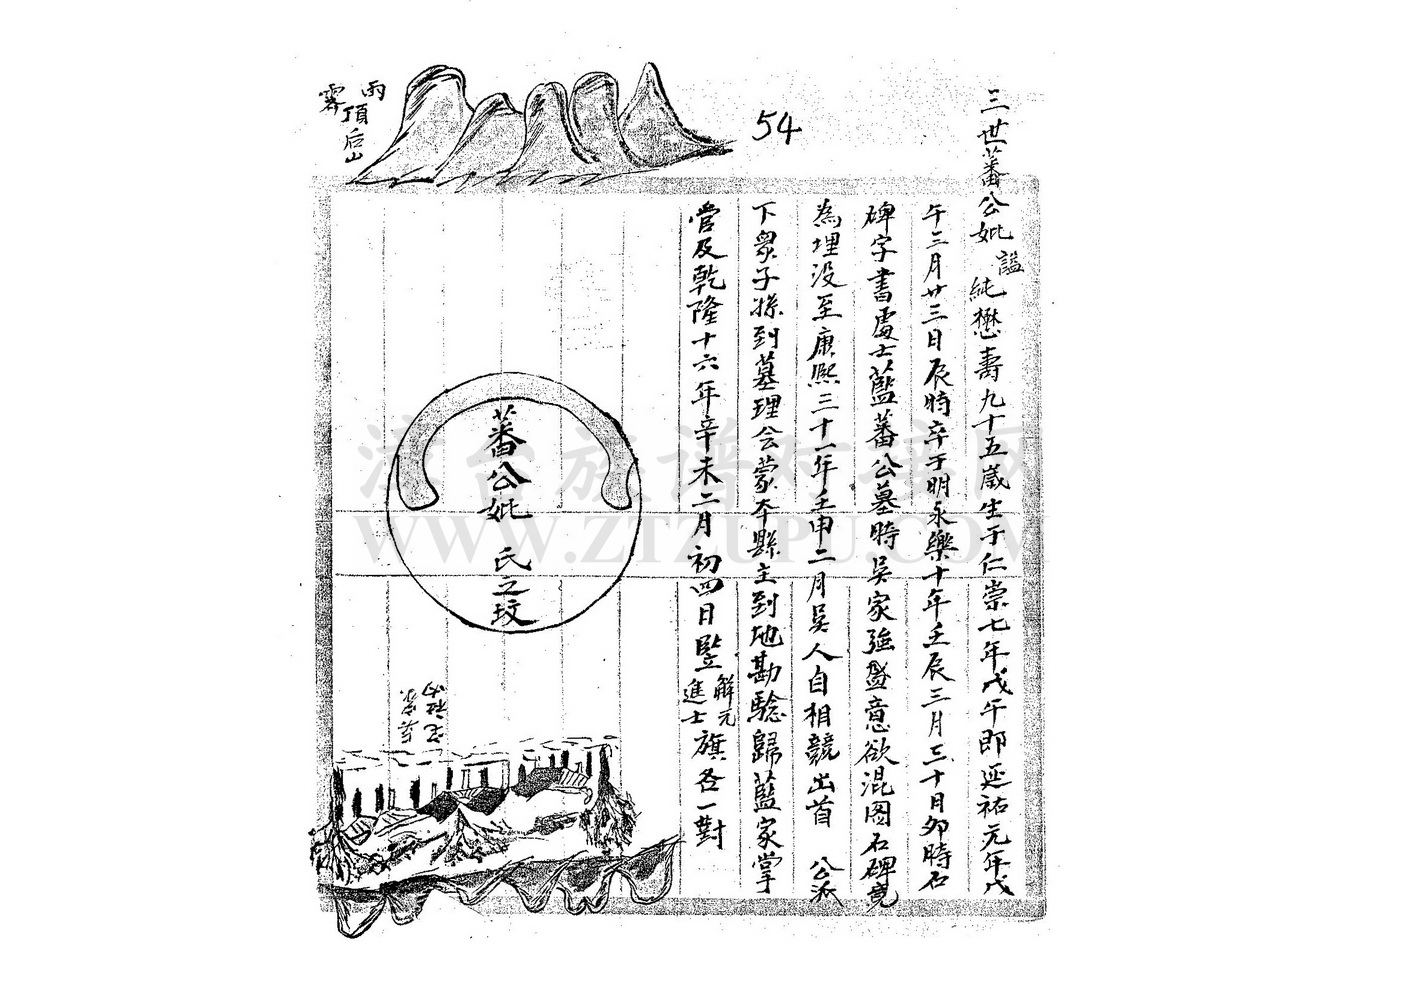 54
三世蕃公妣 謚純懋壽九十五歲生于仁崇七年戊午即延祐元年戊
午三月廿三日辰時卒于明永樂十年壬辰三月三十日卯時石
碑字書處士藍蕃公墓時吳家強盛意欲混圖石碑竟
為埋没至康熙三十一年壬申二月吳人自相競出首 公派
下眾子孫到墓理会蒙本縣主到地勘驗歸藍家掌
管及乾隆十六年辛未二月初四日豎解元進士旗各一對
蕃公妣 氏之坟
雨霽頂后山
澳台族谱对接网
WWW.ZTZUPU.COM